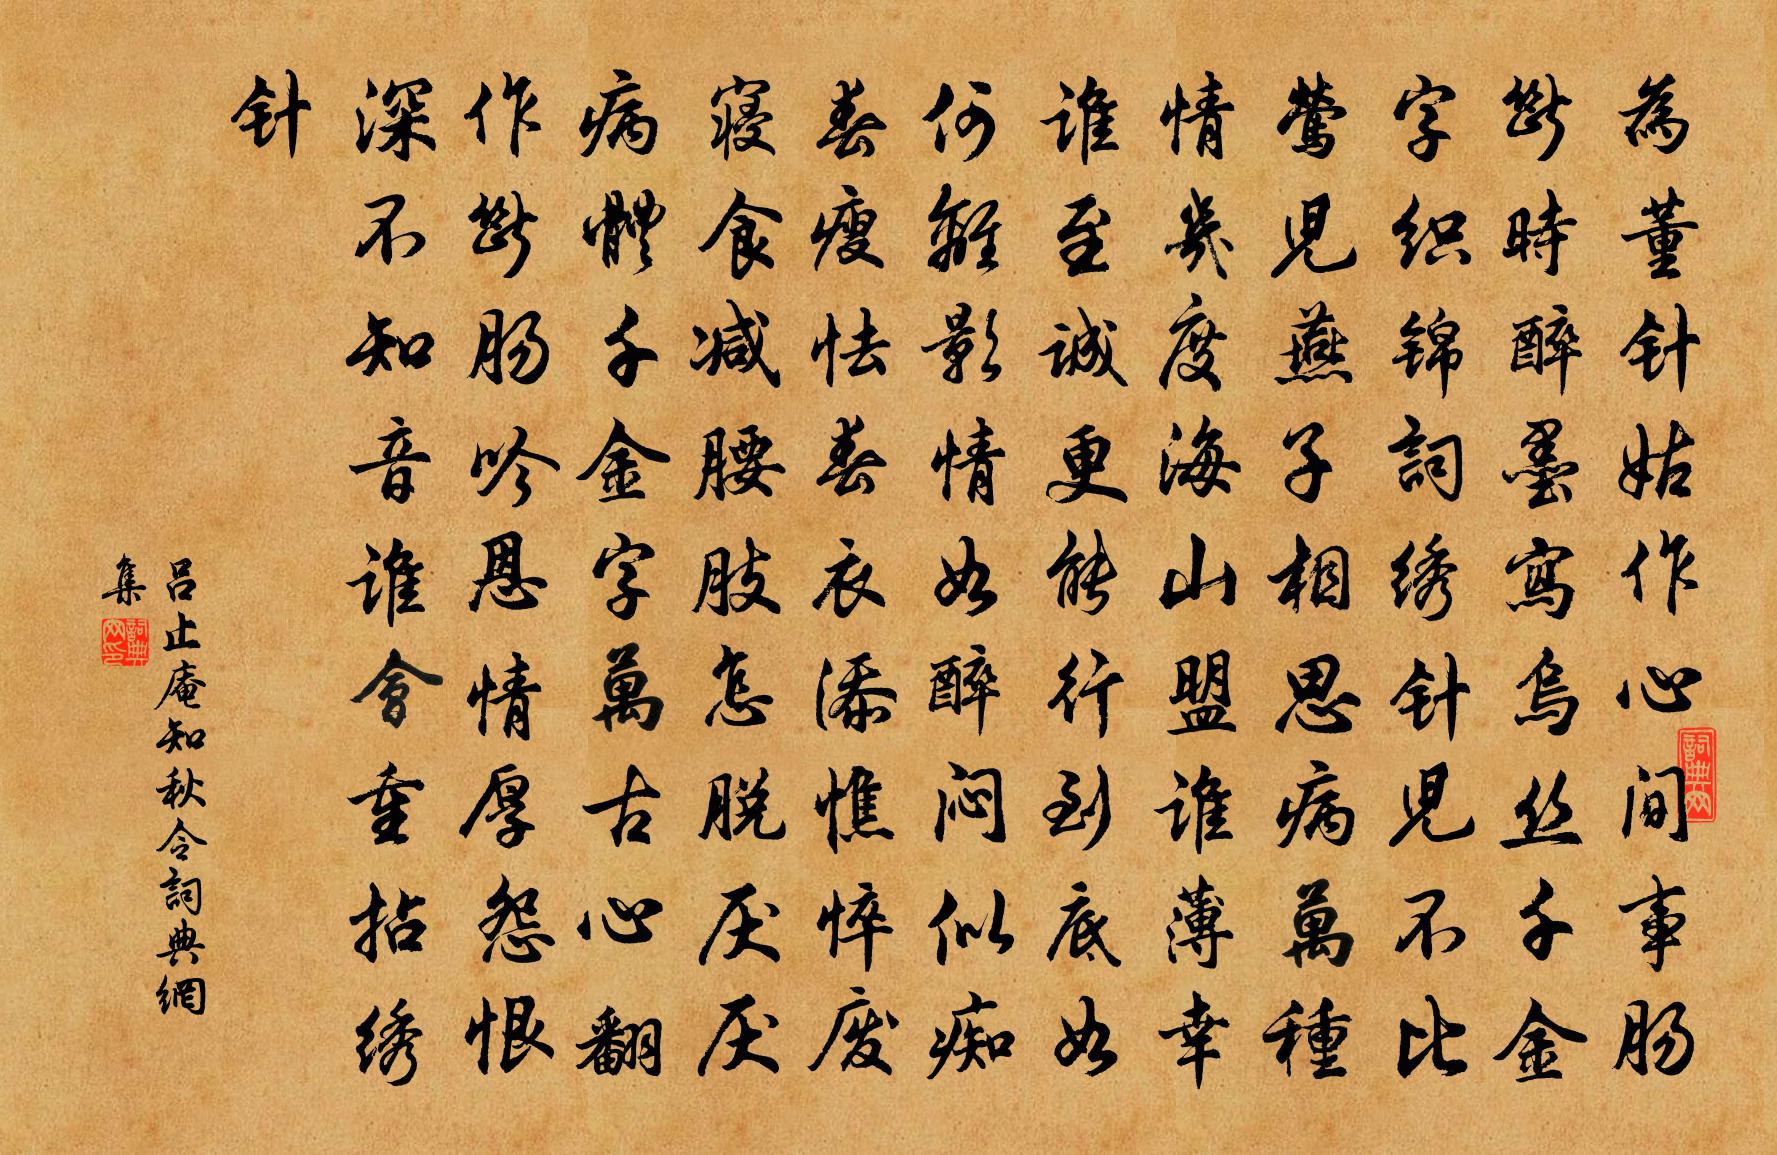 為董针姑作心间事肠
断時醉墨寫乌丝千金
字织锦詞绣针児不比
莺児燕子相思病萬種
情幾度海山盟誰薄幸
誰至誠更能行到底如
何離影情如醉闷似痴
春瘦怯春衣添憔悴废
寝食减腰肢怎脱厌厌
病體千金字萬古心翻
作断肠吟恩情厚怨恨
深不知音誰會重拈绣
针
吕止庵知秋令詞典網
集
詞典网
詞典网印